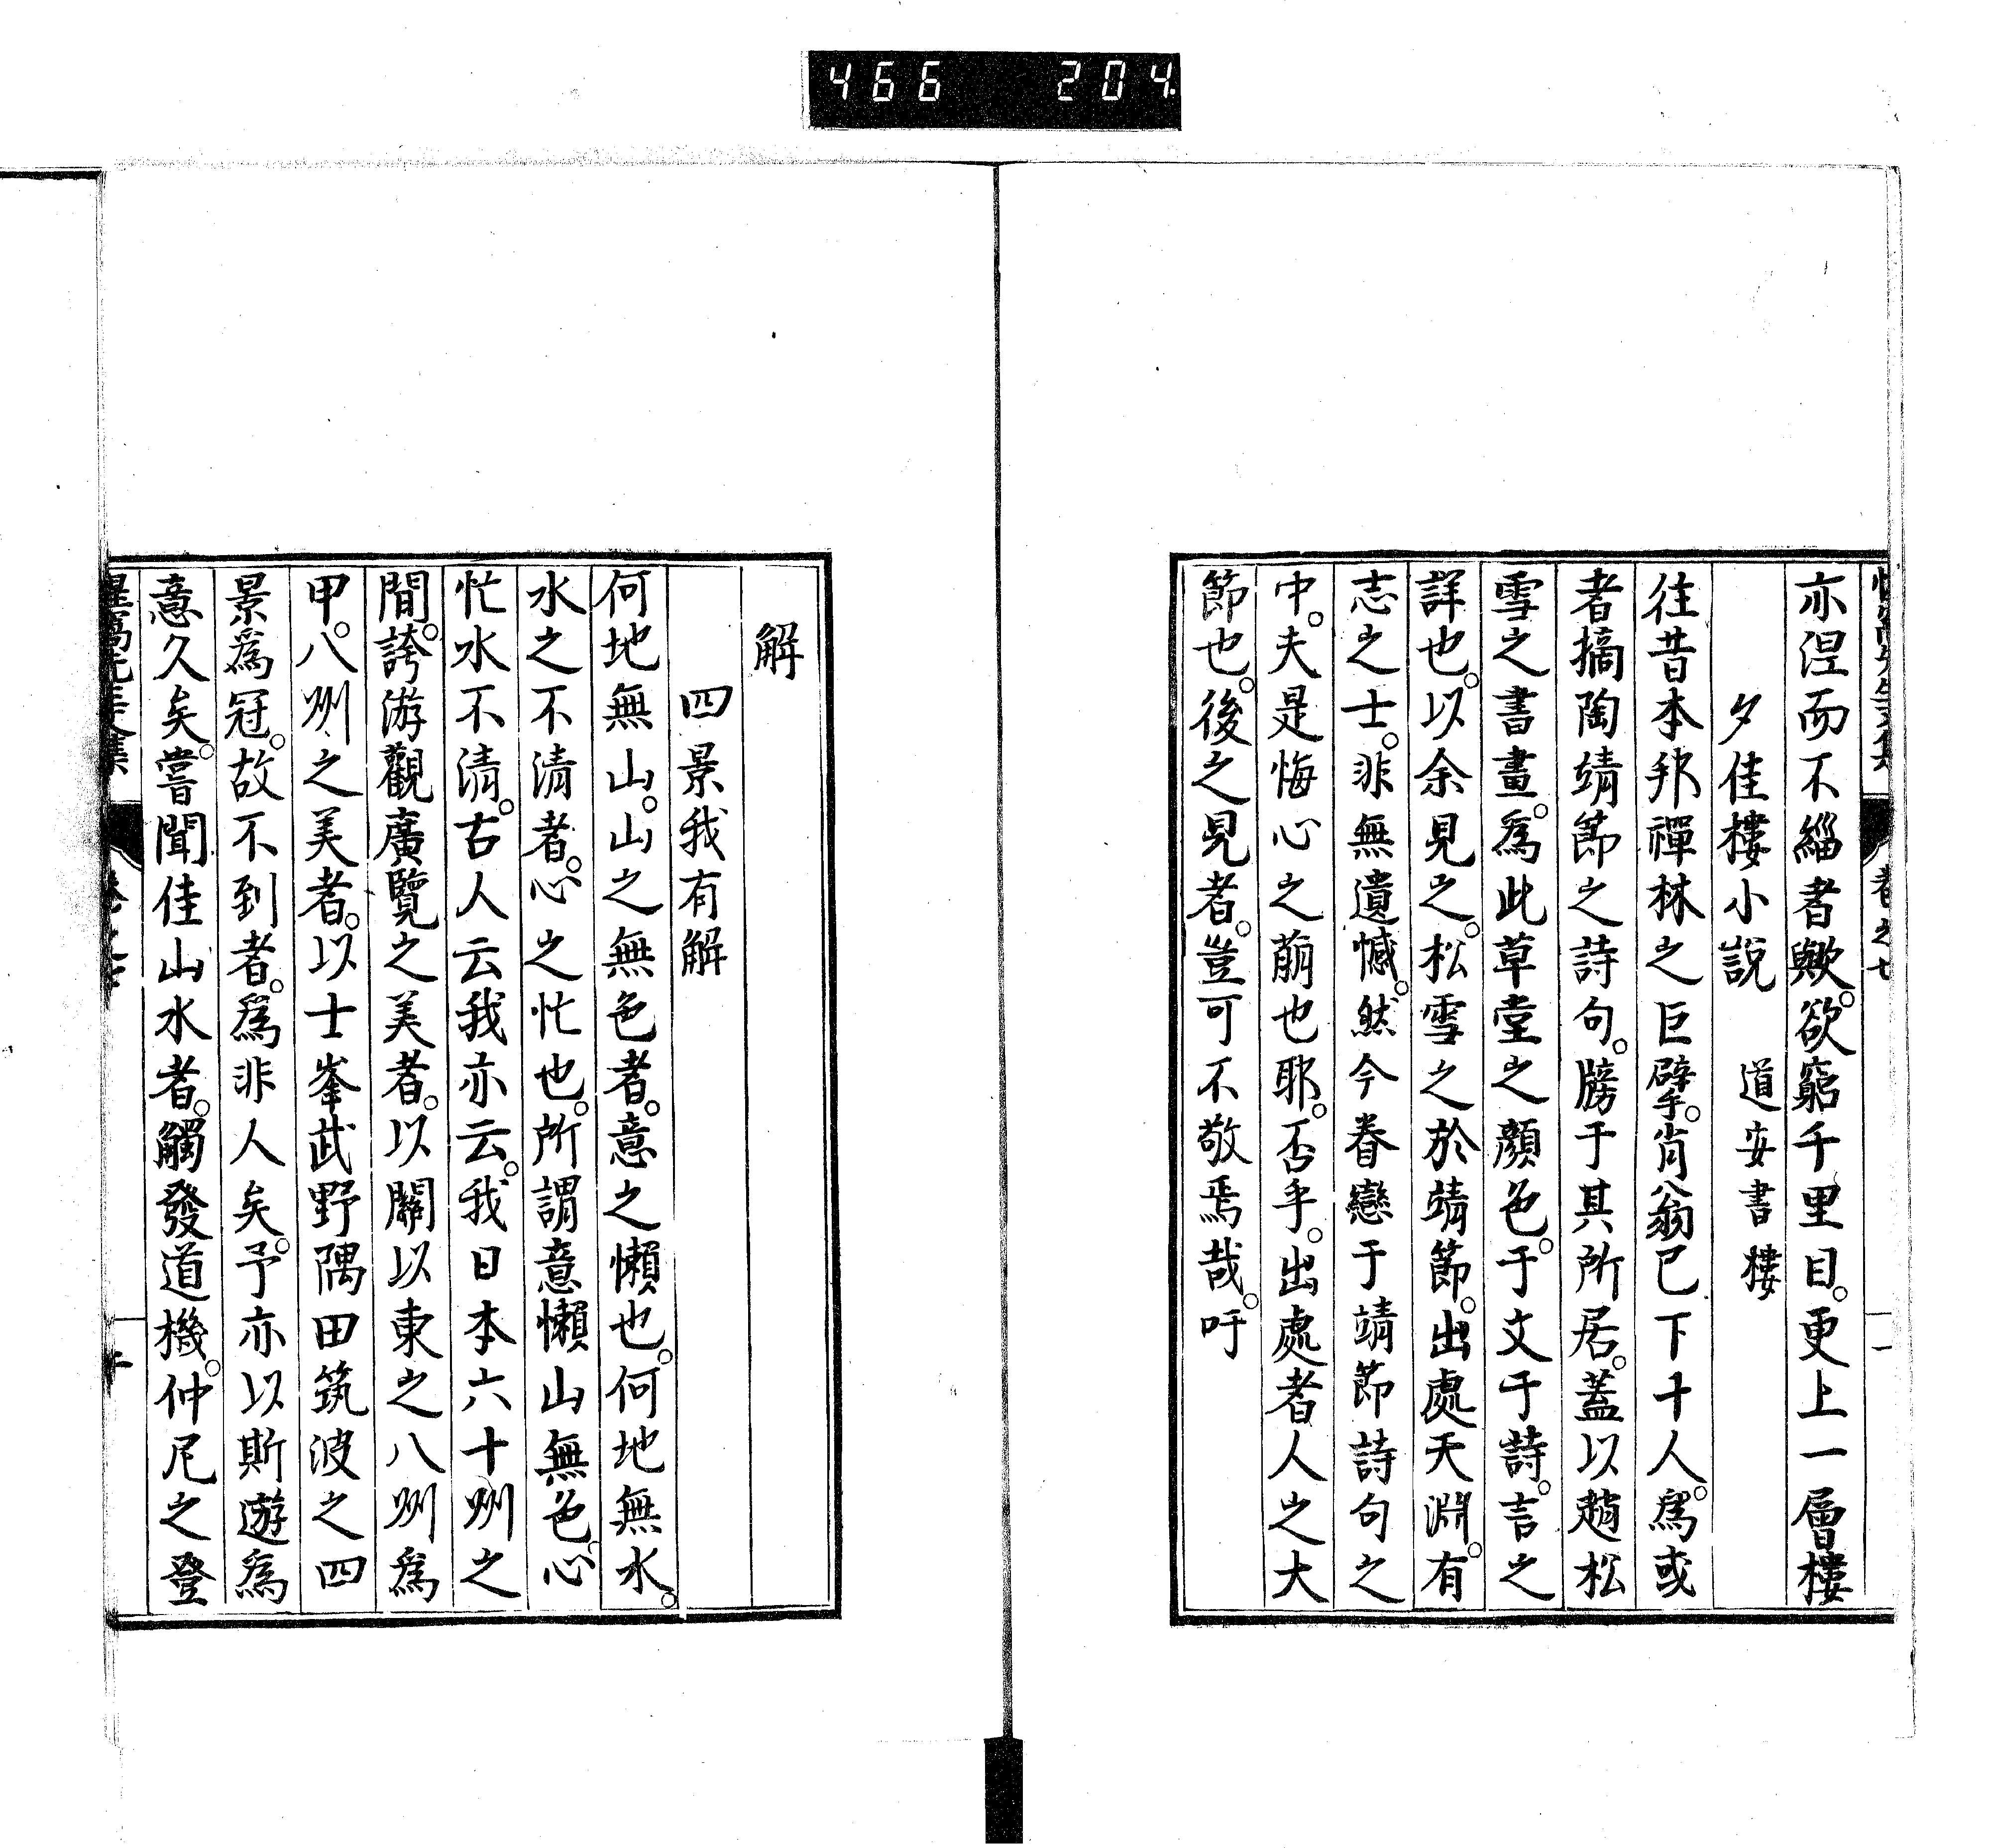 466 204.
亦涅而不緇者歟。欲窮千里目。更上一層樓
夕佳樓小說 道安書樓
往昔本邦禪林之巨擘。肖翁已下十人。爲或
者摘陶靖節之詩句。牓于其所居。蓋以趙松
雪之書畫。爲此草堂之顏色。于文于詩。言之
詳也。以余見之。松雪之於靖節。出處天淵。有
志之士。非無遺憾。然今眷戀于靖節詩句之
中。夫是悔心之萠也耶。否乎。出處者人之大
節也。後之見者。豈可不敬焉哉。吁
解
四景我有解
何地無山。山之無色者。意之懶也。何地無水。
水之不淸者。心之忙也。所謂意懶山無色。心
忙水不淸。古人云我亦云。我日本六十州之
間。誇游觀廣覽之美者。以關以東之八州爲
甲。八州之美者。以士峯武野隅田筑波之四
景爲冠。故不到者。爲非人矣。予亦以斯遊爲
意久矣。嘗聞佳山水者。觸發道機。仲尼之登